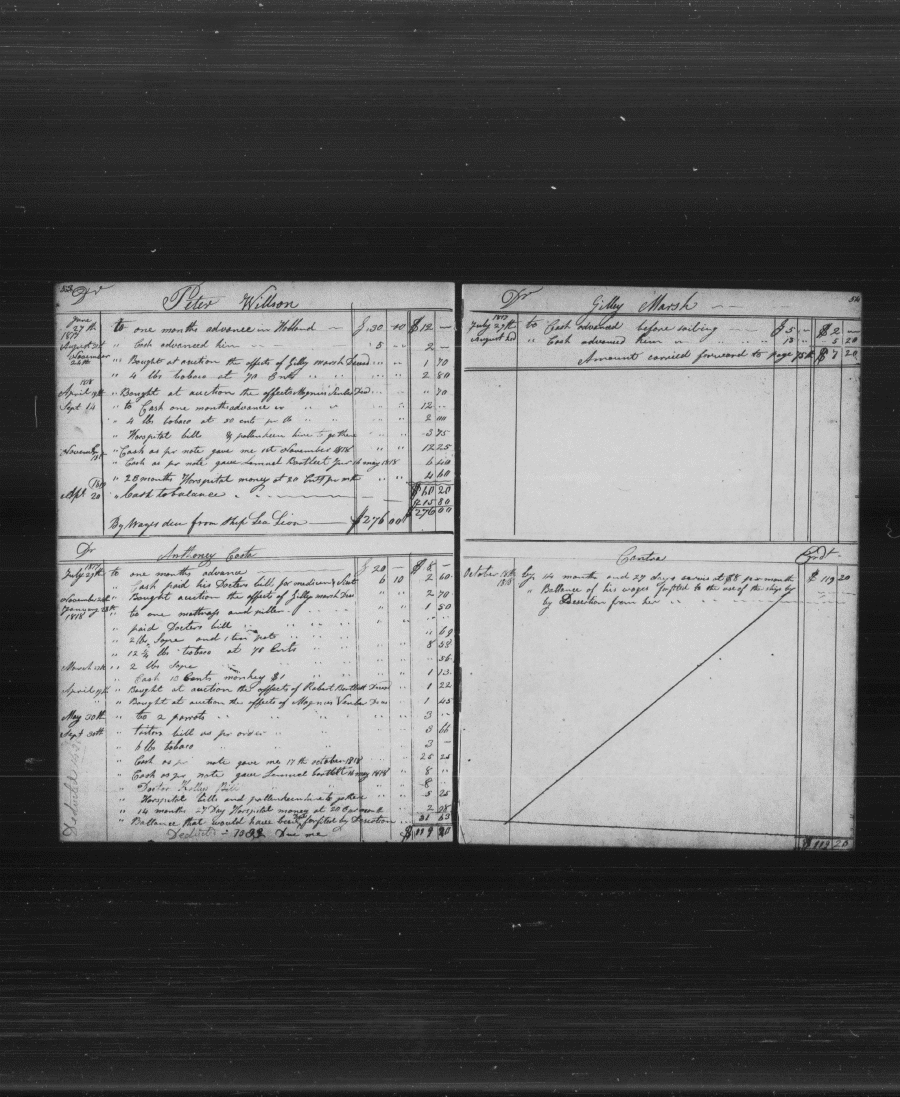 Dr
Peter Willson
June 27th to one months advance in Holland $ 30 40 $ 12 —
August 21st " Cash advanced him 5 — 2 —
November 24th " Bought at auction the effects of Gilley Marsh Decsd 1 70
" 4 lbs tobaco at 70 Cents 2 80
1818
April 19th " Bought at auction the effects Magnus Dcsd " 70
Sept 14 " to Cash one months advance 12 —
" 4 lbs tobaco at 50 cents pr lb 2
" Horspital bills & pallenkeen hire to gethere 3 75
November 1st " Cash as pr note gave me 1st November 1818 12 25
" Cash as pr note gave Lemuel Bartlett Jur 16 may 1818 6 40
" 23 months Horspital money at 20 Cents pr mth 4 60
1819
Apr 20 " Cash to balance $ 60 20
215 80
By Wages due from Ship Sea Lion $ 276 00 $ 276 00
Dr
Anthoney Costa
1817
July 29th to one months advance $ 20 — $ 8 —
" Cash paid his Doctors bill for medicin 6 10 2 40
November 24th " Bought auction the effects of Gilley Marsh Decs 2 70
January 28th 1818 " to one mattrass and pillow 1 50
" paid Docters bill
" 2 lbs Sope and 1 tin pots " 60
" 12 1/4 lbs tobaco at 70 Cents 8 58
March " 2 lbs Sope 56
" Cash 10 Cents monkey $1 1 13
April 19th " Bought at auction the effects of Robert Bartlett Decsd 1 22
" Bought at auction the effects of Magnus Decs 1 45
May 30th " to 2 parrots 3 —
Sept 30th " Doctors bill as per order 3 66
" 6 lbs tobaco 3 —
" Cash as pr note gave me 17th october 1818 25 25
" Cash as pr note gave Lemuel Bartlett 16 may 1818 8 "
" Doctor Kelley Bill 8 —
" Horspital bills and pallenkeen hire to gethere 5 25
" 14 months 27 Day Horspital money at 20 Cts 2 98
" Ballance that would have been due forfited by Desertion 31 63
Deducted = Due me $ 119 20
Dr
Gilley Marsh
54
1817
July 29th to Cash advanced before sailing $ 5 — $ 2 —
August " Cash advanced him 13 — 5 20
Amount carried forward to page 75th $ 7 20
Contra
Crdt
October 18th 1818 by 14 month and 27 days servis at $8 per month $ 119 20
" Ballance of his wages forfited to the use of the ship by
by Desertion from her
$ 119 20